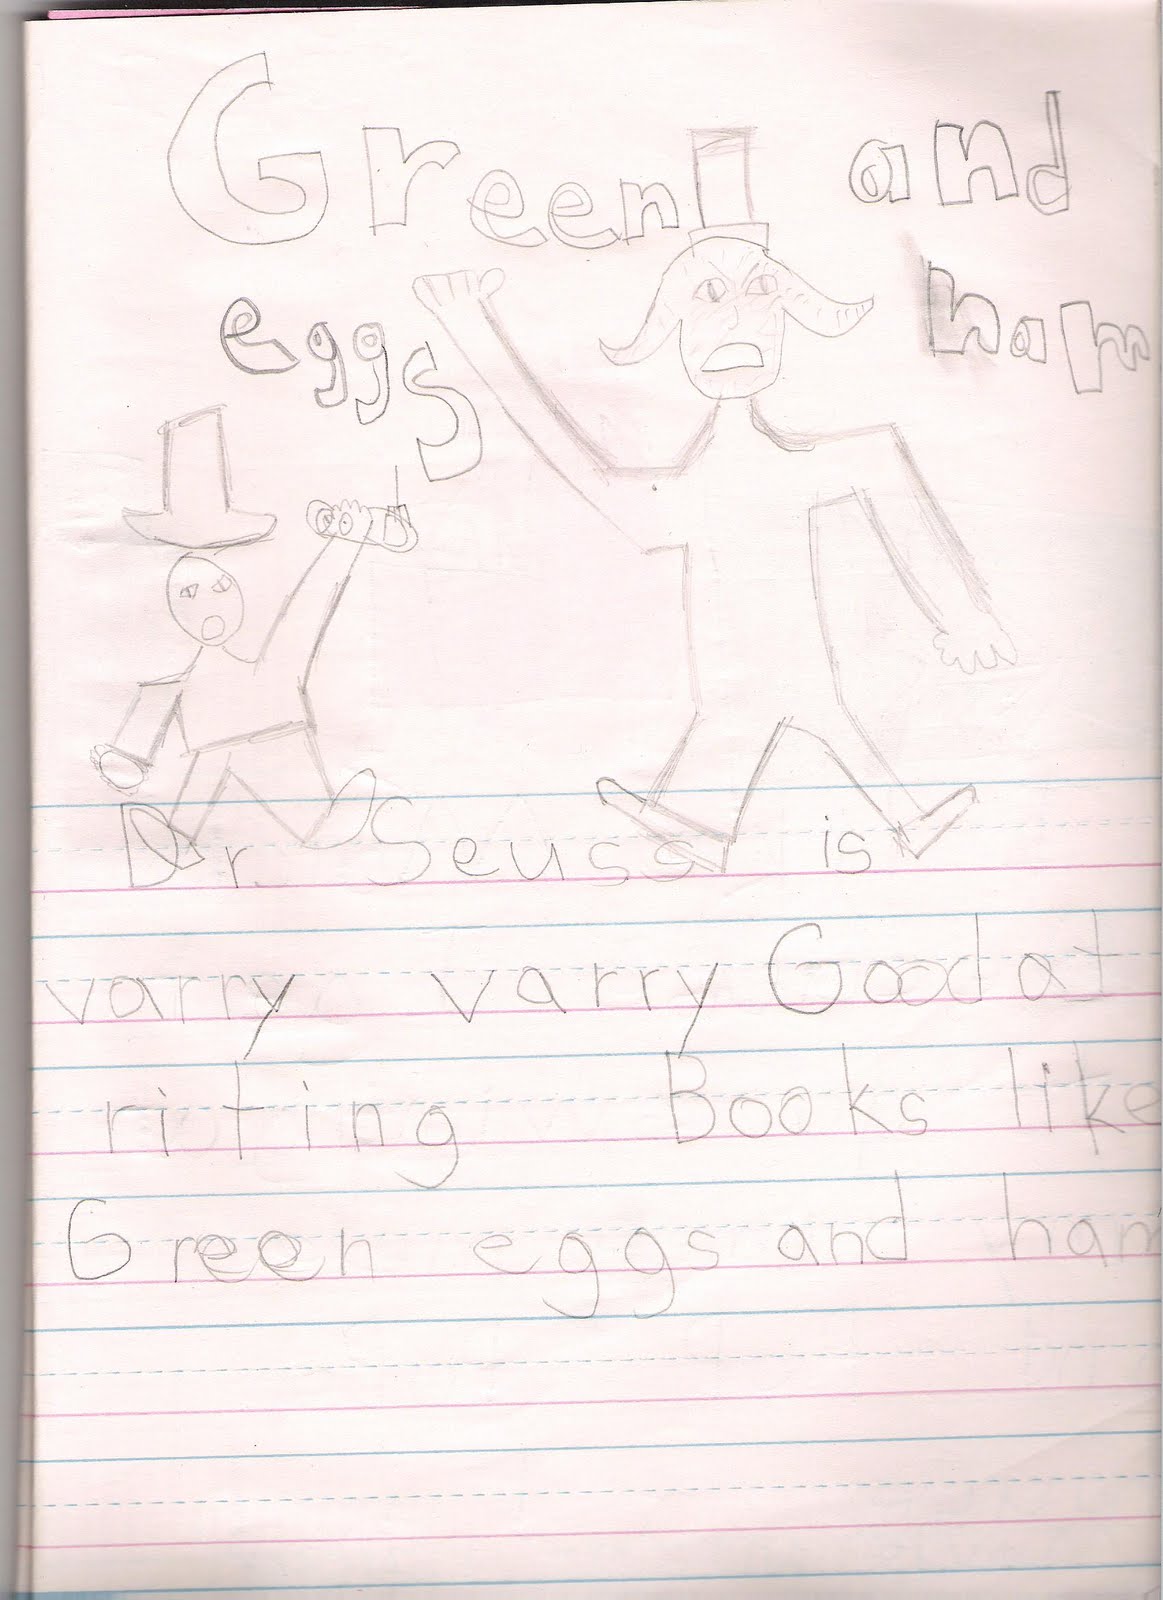 Green and
eggs ham
Dr. Seuss is
varry varry Good at
riting Books like
Green eggs and ham